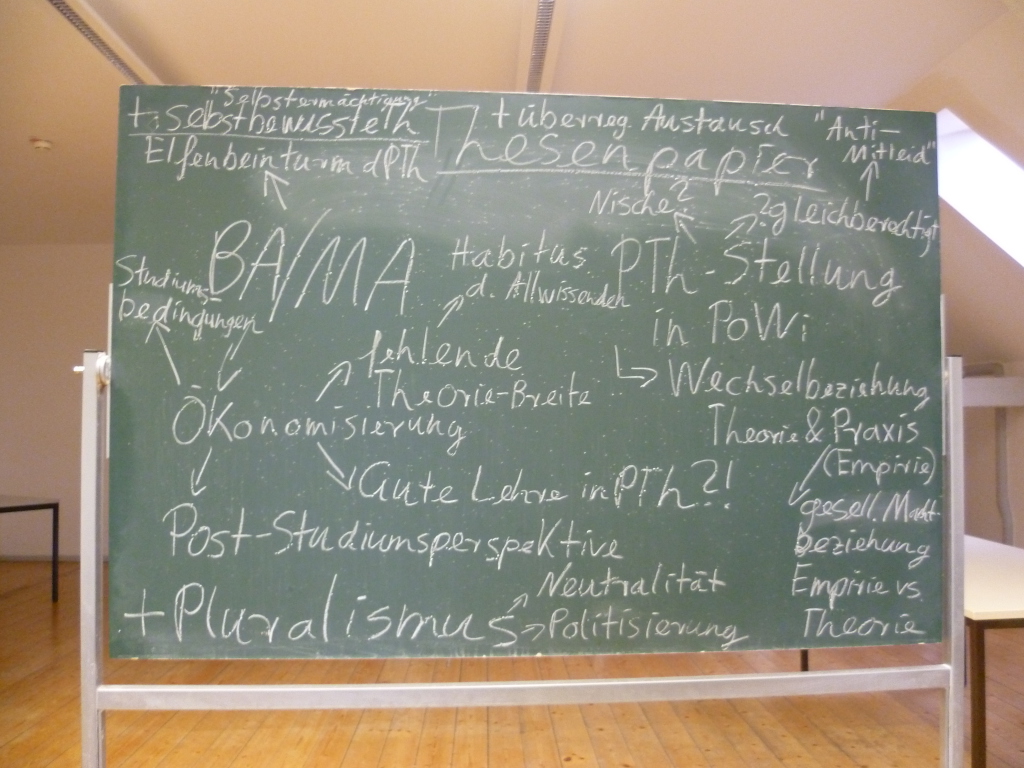 "Selbstermächtigung"
+ selbstbewusstein
Elfenbeinturm dPTh
Thesenpapier
+ überreg. Austausch
"Anti-
Mitleid"
Nische?
? gleichberechtigt
BA/MA
Studiums-
bedingungen
Habitus
d. Allwissenden
PTh-Stellung
in PoWi
fehlende
Theorie-Breite
Wechselbeziehung
Theorie & Praxis
(Empirie)
Ökonomisierung
Gute Lehre in PTh?!
gesell. Macht-
beziehung
Post-Studiumsperspektive
Empirie vs.
Theorie
+ Pluralismus
Neutralität
Politisierung